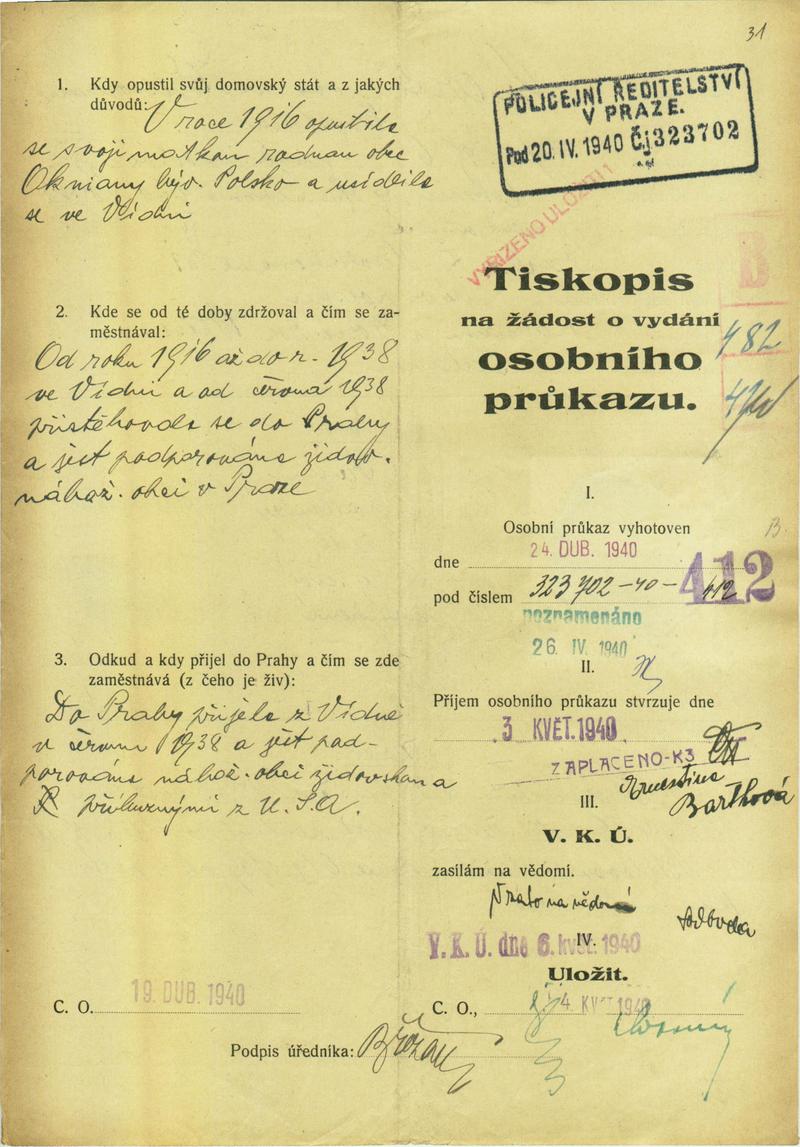 31
1. Kdy opustil svůj domovský stát a z jakých
důvodů: V roce 1916 opustila
se svojí matkou rodnou obec
Okniany býv. Polsko a usídlila
se ve Vídni
2. Kde se od té doby zdržoval a čím se za-
městnával:
Od roku 1916 až do r. 1938
ve Vídni a od června 1938
přistěhovala se do Prahy
a jest podporována židov.
nábož. obcí v Praze
3. Odkud a kdy přijel do Prahy a čím se zde
zaměstnává (z čeho je živ):
Do Prahy přijela z Vídně
v červnu 1938 a jest pod-
porována nábož. obcí židovskou a
příbuznými z U.S.A.
C. O. 19. DUB. 1940
Podpis úředníka:
POLICEJNÍ ŘEDITELSTVÍ
V PRAZE.
Pod 20. IV. 1940 Čj 323702
VYŘÍZENO ULOŽITI
B
Tiskopis
na žádost o vydání
osobního
průkazu.
482
I.
Osobní průkaz vyhotoven
B.
dne 24. DUB. 1940
pod číslem 323702-40- 412
412
poznamenáno
26. IV. 1940
II.
Příjem osobního průkazu stvrzuje dne
3 KVĚT. 1940
ZAPLACENO-K3
Ernestine
Barthová
III.
V. K. Ú.
zasílám na vědomí.
Vzato na vědomí
Svoboda
V. K. Ú. dne 6. květ. 1940
IV.
Uložit.
C. O., 14 KVĚT 1940